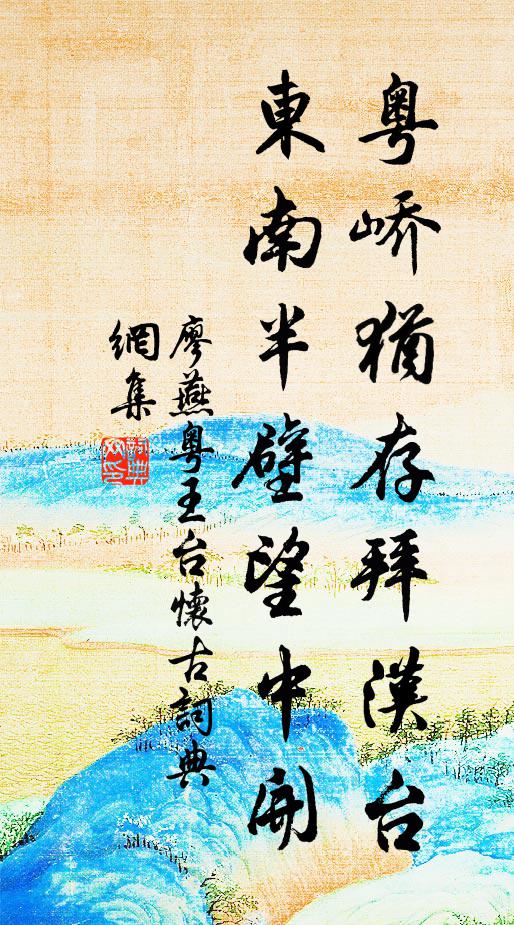 粵嶠猶存拜漢台
東南半壁望中開
廖燕粵王台懷古詞典
網集